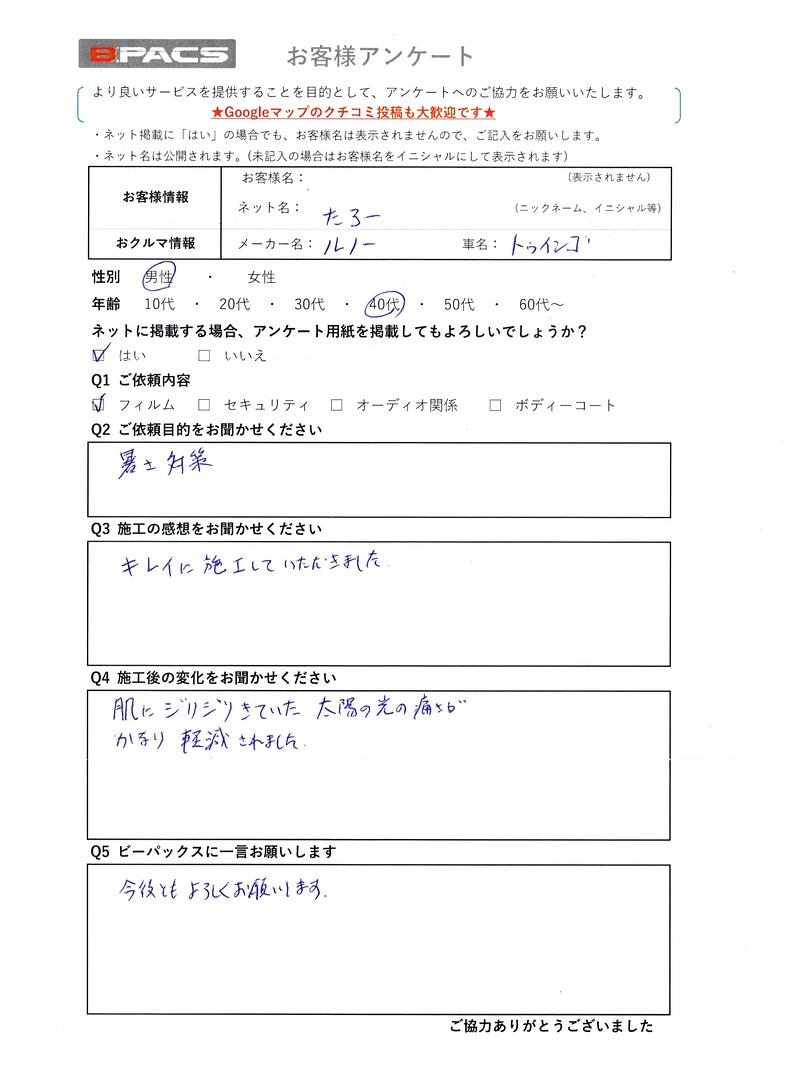 B-PACS お客様アンケート
より良いサービスを提供することを目的として、アンケートへのご協力をお願いいたします。
★Googleマップのクチコミ投稿も大歓迎です★
・ネット掲載に「はい」の場合でも、お客様名は表示されませんので、ご記入をお願いします。
・ネット名は公開されます。(未記入の場合はお客様名をイニシャルにして表示されます)
お客様情報
お客様名： (表示されません)
ネット名： たろー (ニックネーム、イニシャル等)
おクルマ情報 メーカー名： ルノー 車名： トゥインゴ
性別 男性 ・ 女性
年齢 10代 ・ 20代 ・ 30代 ・ 40代 ・ 50代 ・ 60代～
ネットに掲載する場合、アンケート用紙を掲載してもよろしいでしょうか？
☑ はい □ いいえ
Q1 ご依頼内容
☑ フィルム □ セキュリティ □ オーディオ関係 □ ボディーコート
Q2 ご依頼目的をお聞かせください
暑さ対策
Q3 施工の感想をお聞かせください
キレイに施工していただきました.
Q4 施工後の変化をお聞かせください
肌にジリジリきていた 太陽の光の痛さが
かなり 軽減されました.
Q5 ビーパックスに一言お願いします
今後ともよろしくお願いします.
ご協力ありがとうございました